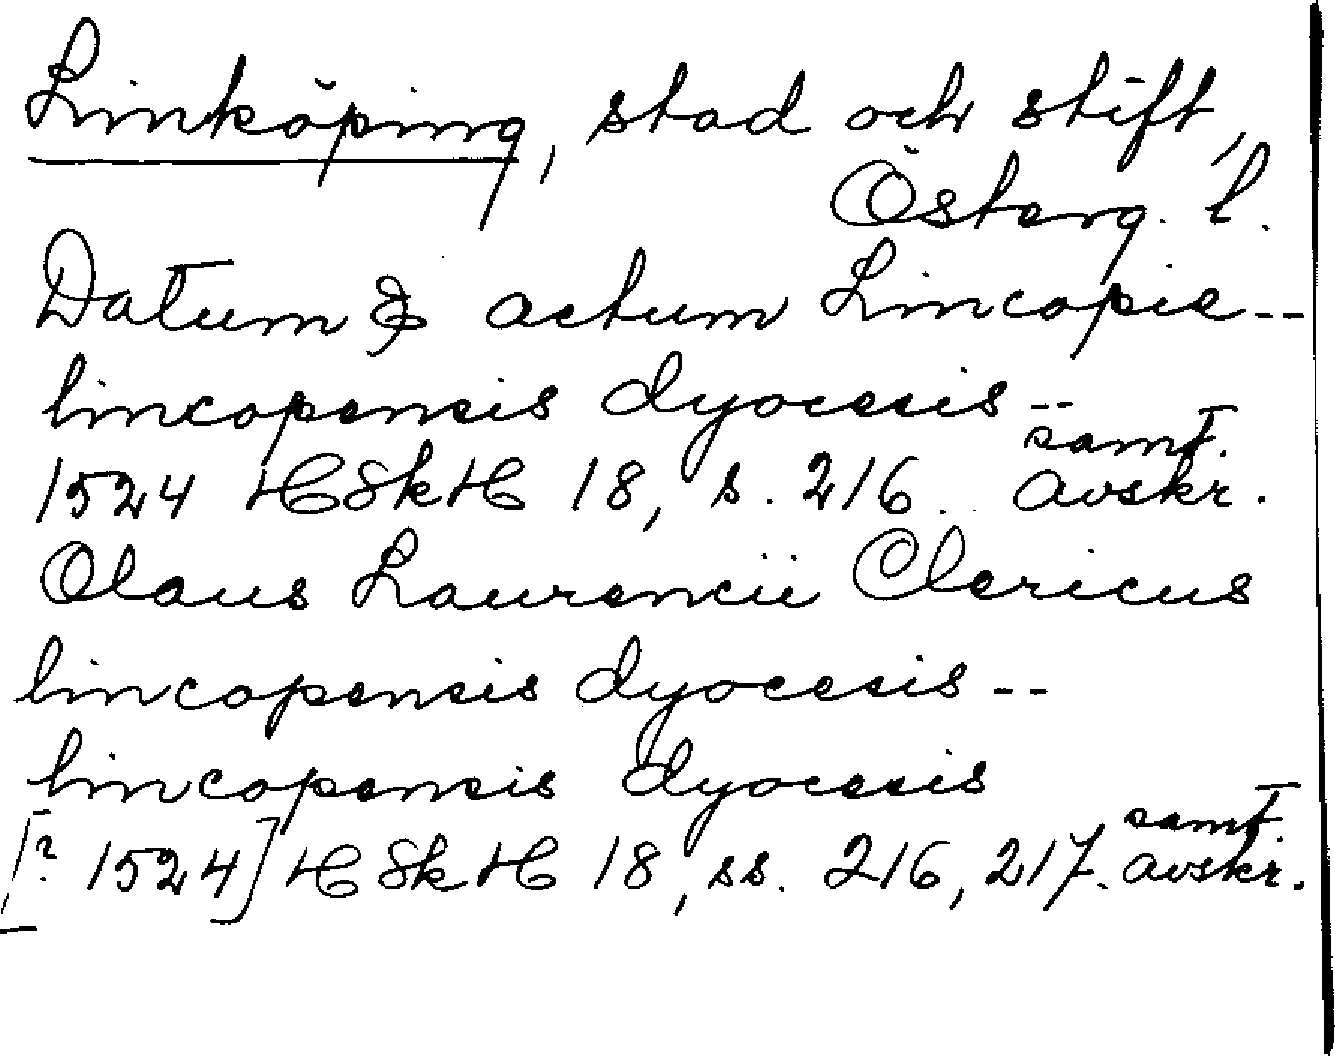 Linköping, stad och stift,
Österg. l.
Datum & actum Lincopie --
lincopensis dyocesis --
samt.
1524 HSkH 18, s. 216. avskr.
Olaus Laurencii Clericus
lincopensis dyocesis --
lincopensis dyocesis
samt.
[? 1524] HSkH 18, ss. 216, 217. avskr.